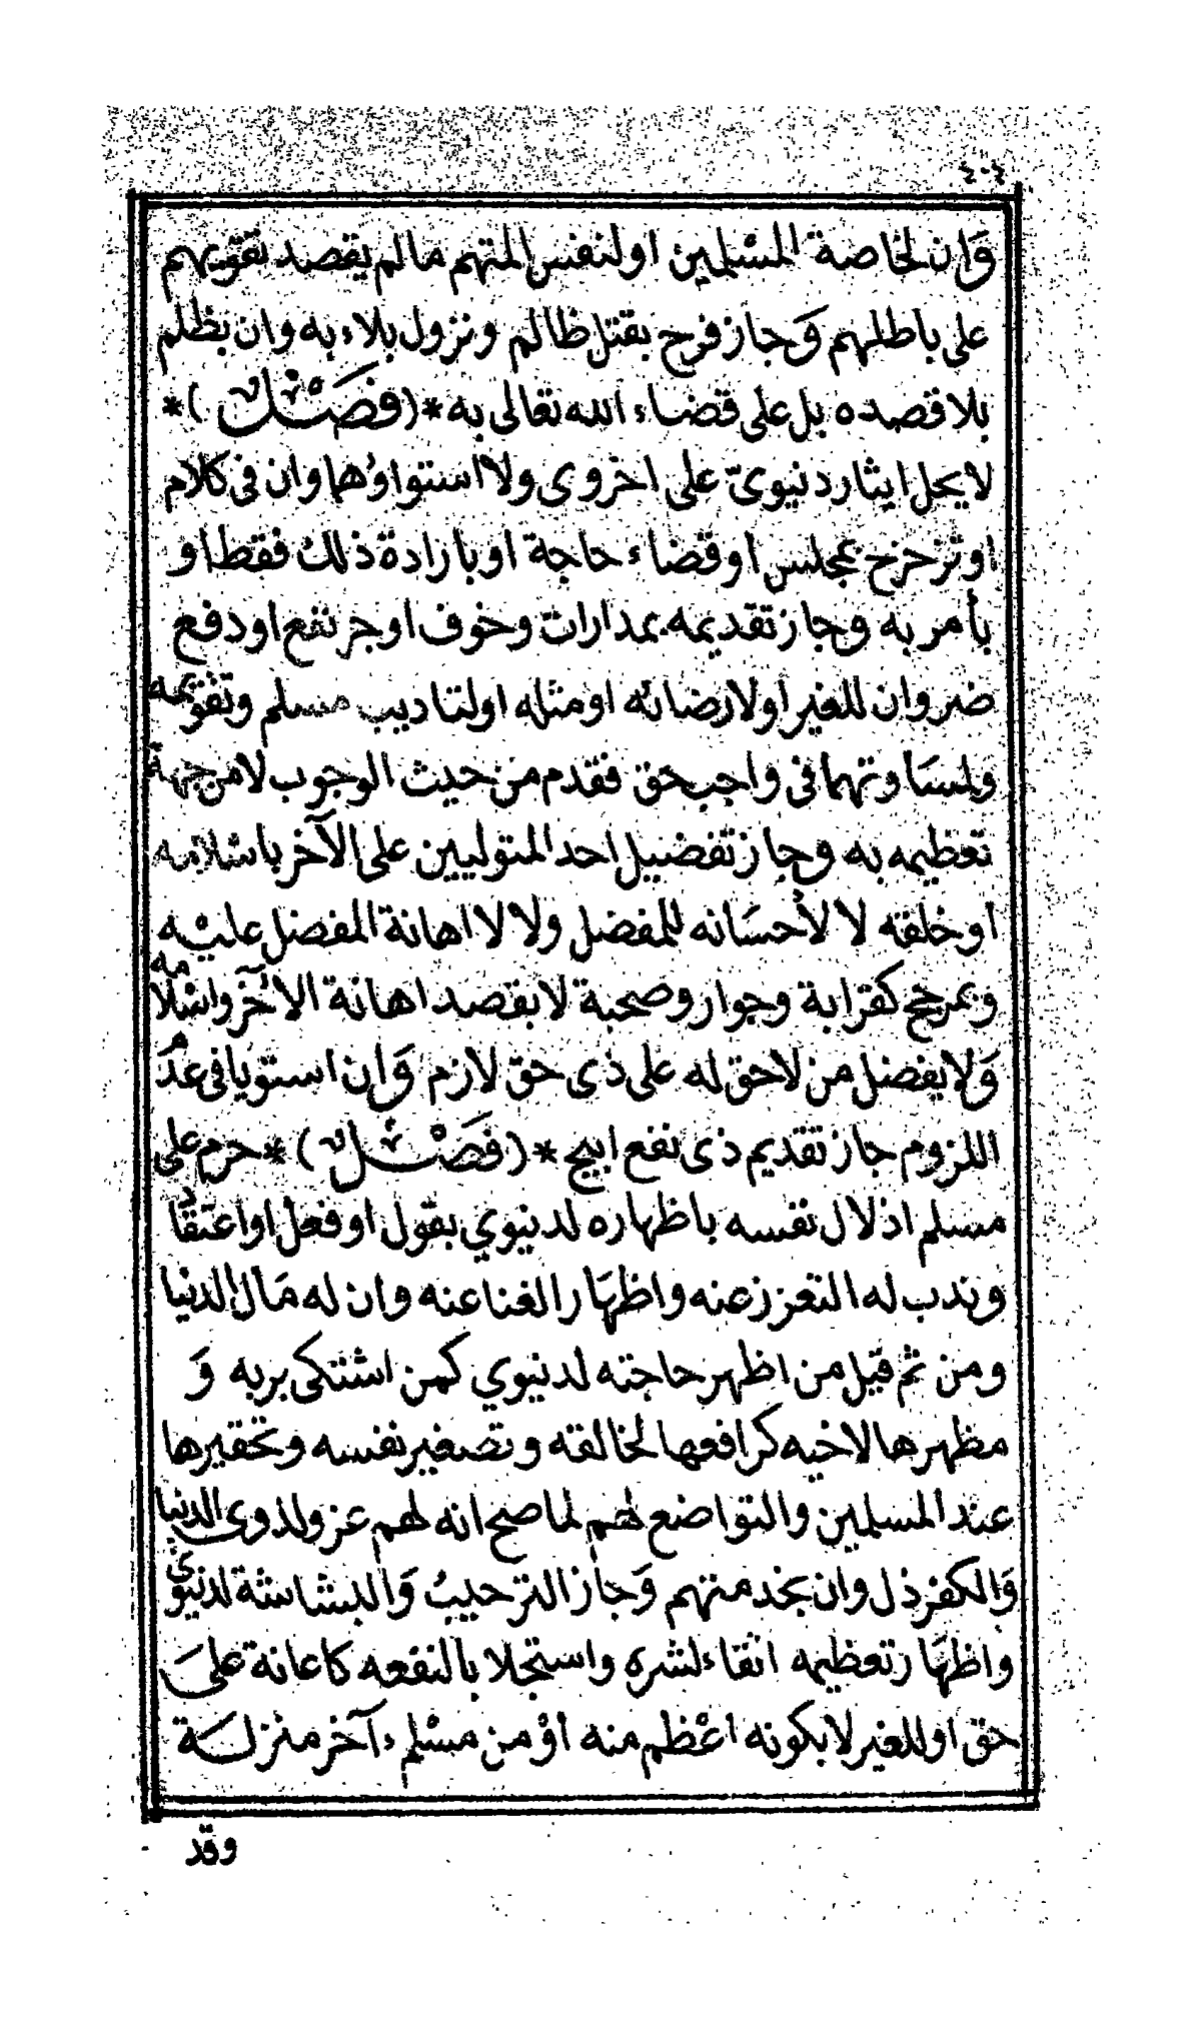 ٤٠٤
وَان لخاصة المسْلمين اولنفس المتهم مالم يقصد تقويهم
على باطلهم وَجاز فرح بقتل ظالم ونزول بلاء به وان بظلم
بلا قصده بل على قضاء الله تعالى به *(فصْل)*
لا يحل ايثار دنيوىّ على اخروى ولا استواؤهما وان فى كلام
او تزحزح بمجلس او قضاء حاجة او بارادة ذلك فقط او
بأمر به وجاز تقديمه بمدارات وخوف او جر نفع او دفع
ضر وان للغير اولارضائه او مثله او لتاديب مسلم وتقويمه
ولمسَاوتهما فى واجب حق فقدم من حيث الوجوب لا من جهة
تعظيمه به وجاز تفضيل احد المتوليين على الآخر باسلامه
او خلقه لا لأحسَانه للمفضل ولا لا اهانة المفضل عليْه
وبمرجح كقرابة وجوار وصحبة لا بقصد اهانة الاٰخر واسْلامه
وَلا يفضل من لا حق له على ذى حق لازم وَان استويا فى عدَم
اللزوم جاز تقديم ذى نفع ابيح *(فصْل)* حرم على
مسلم اذلال نفسه باظهاره لدنيوي بقول او فعل او اعتقاد
وندب له التعزز عنه واظهَار الغنا عنه وان له مَال الدنيا
ومن ثم قيل من اظهر حاجته لدنيوي كمن اشتكى بربه وَ
مظهرها لاخيه كرافعها لخالقه وتصغير نفسه وتحقيرها
عند المسلمين والتواضع لهم لما صح انه لهم عز ولذوى الدنيا
وَالكفر ذل وان بخدمتهم وَجاز الترحيبُ وَالبشاشة لدنيوي
واظهَار تعظيمه اتقاء لشره واستجلابا لنفعه كاعانة علىَ
حق او للغير لا بكونه اعْظم منه اوْ من مسْلمٍ ءآخر منزلـَة
وقد